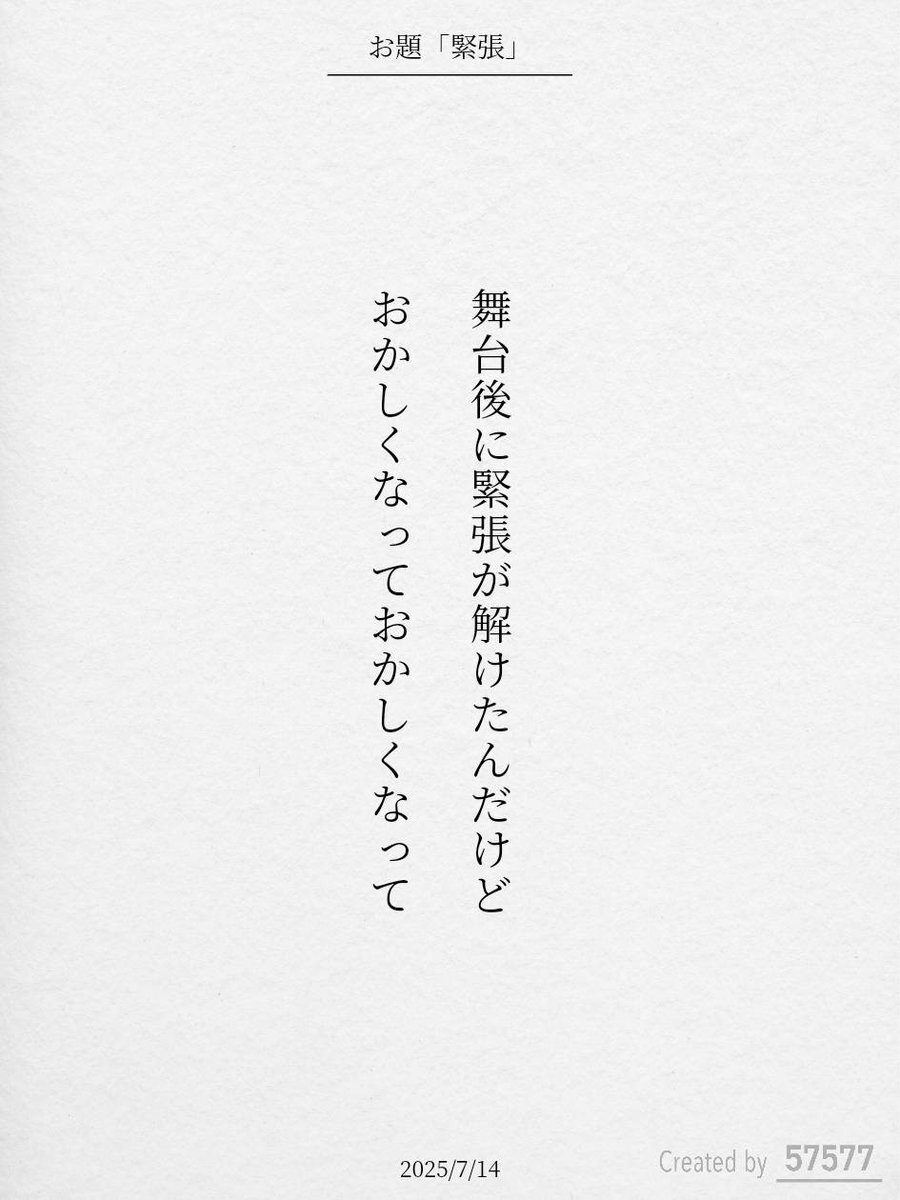 お題「緊張」
舞台後に緊張が解けたんだけど
おかしくなっておかしくなって
2025/7/14
Created by 57577